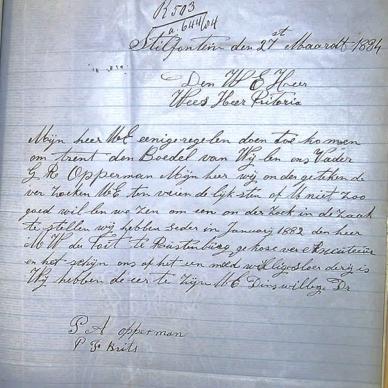 R503
a. 644/84
Stilfontein den 21st Maardt 1884
Den W E Heer
Wees Heer Pritoria
Mijn heer WE eenige regelen doen toe komen
om trent den Boedel van Wijlen ons Vader
G R Opperman Mijn heer wij onder getekende
ver zoeken WE ten vriendelijksten of U niet zoo
goed wil len we zen om een on der zoek in de zaak
te stellen wij hebben zeder in January 1882 den heer
M W du Toit te Rustenburg gekose ver Executeur
en het schijn ons of het een moed willige sloer derij is
Wij hebben de eer te zijn WE Dinswillige Dr
P A Opperman
P J Brits